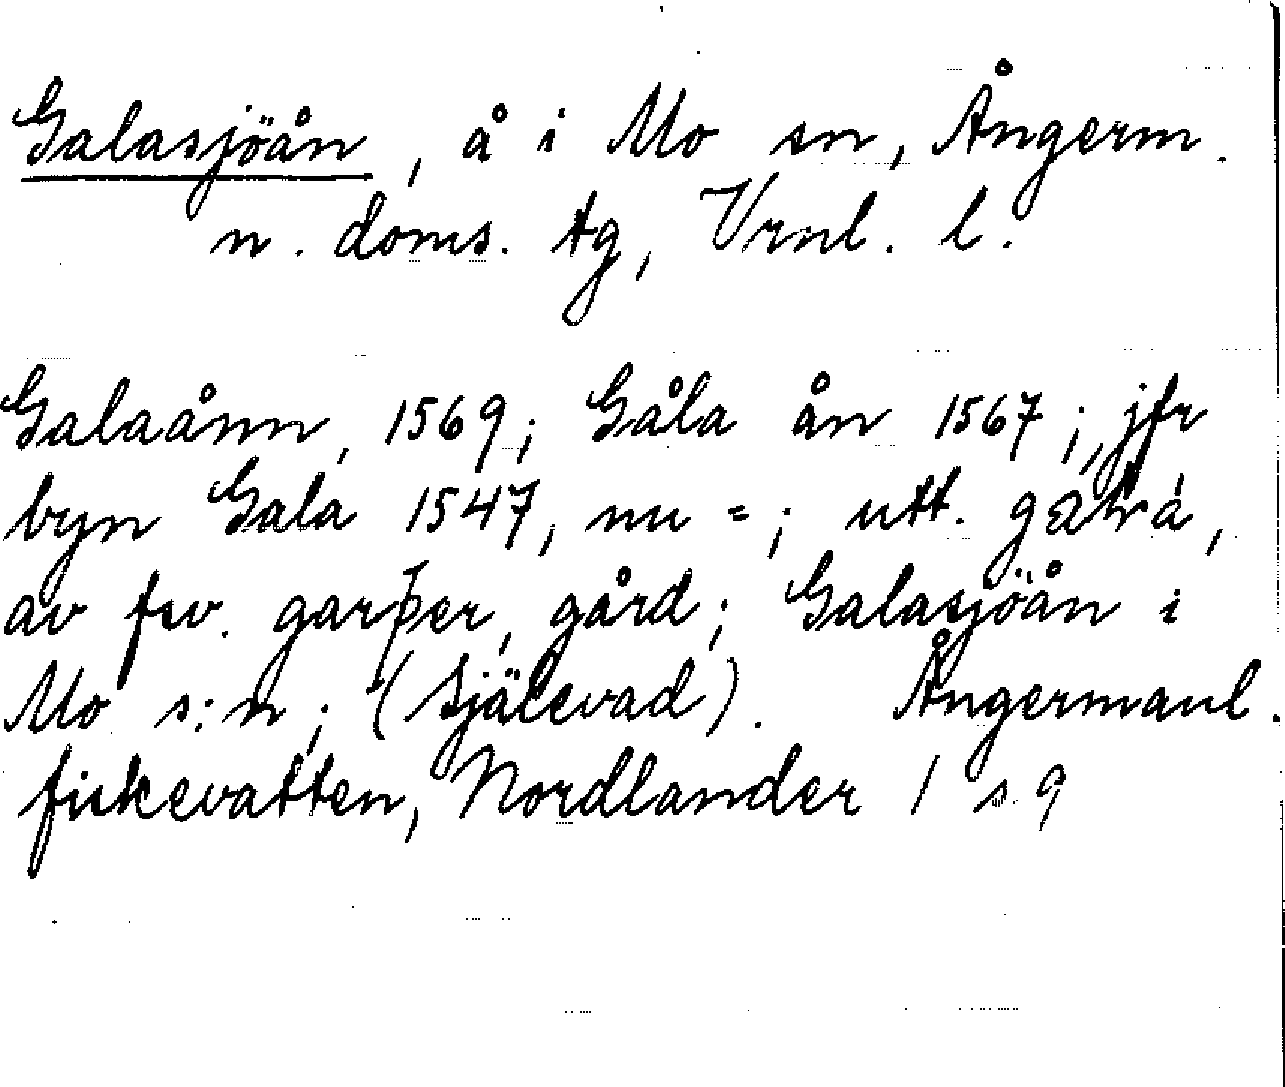 Galasjöån, å i Mo sn, Ångerm.
n. doms. tg, Vrnl. l.
Galaånn, 1569; Gåla ån 1567; jfr
byn Gala 1547, nu =; utt.
av fsv. garþer, gård; Galasjöån i
Mo s:n; (Själevad). Ångermanl.
fiskevatten, Nordlander 1 s. 9